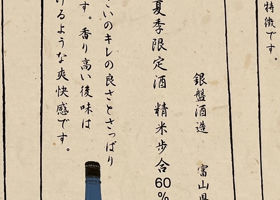 特徴です。
銀盤酒造　富山県
夏季限定酒　精米歩合60%
こいのキレの良さとさっぱり
す。香り高い後味は
けるような爽快感です。